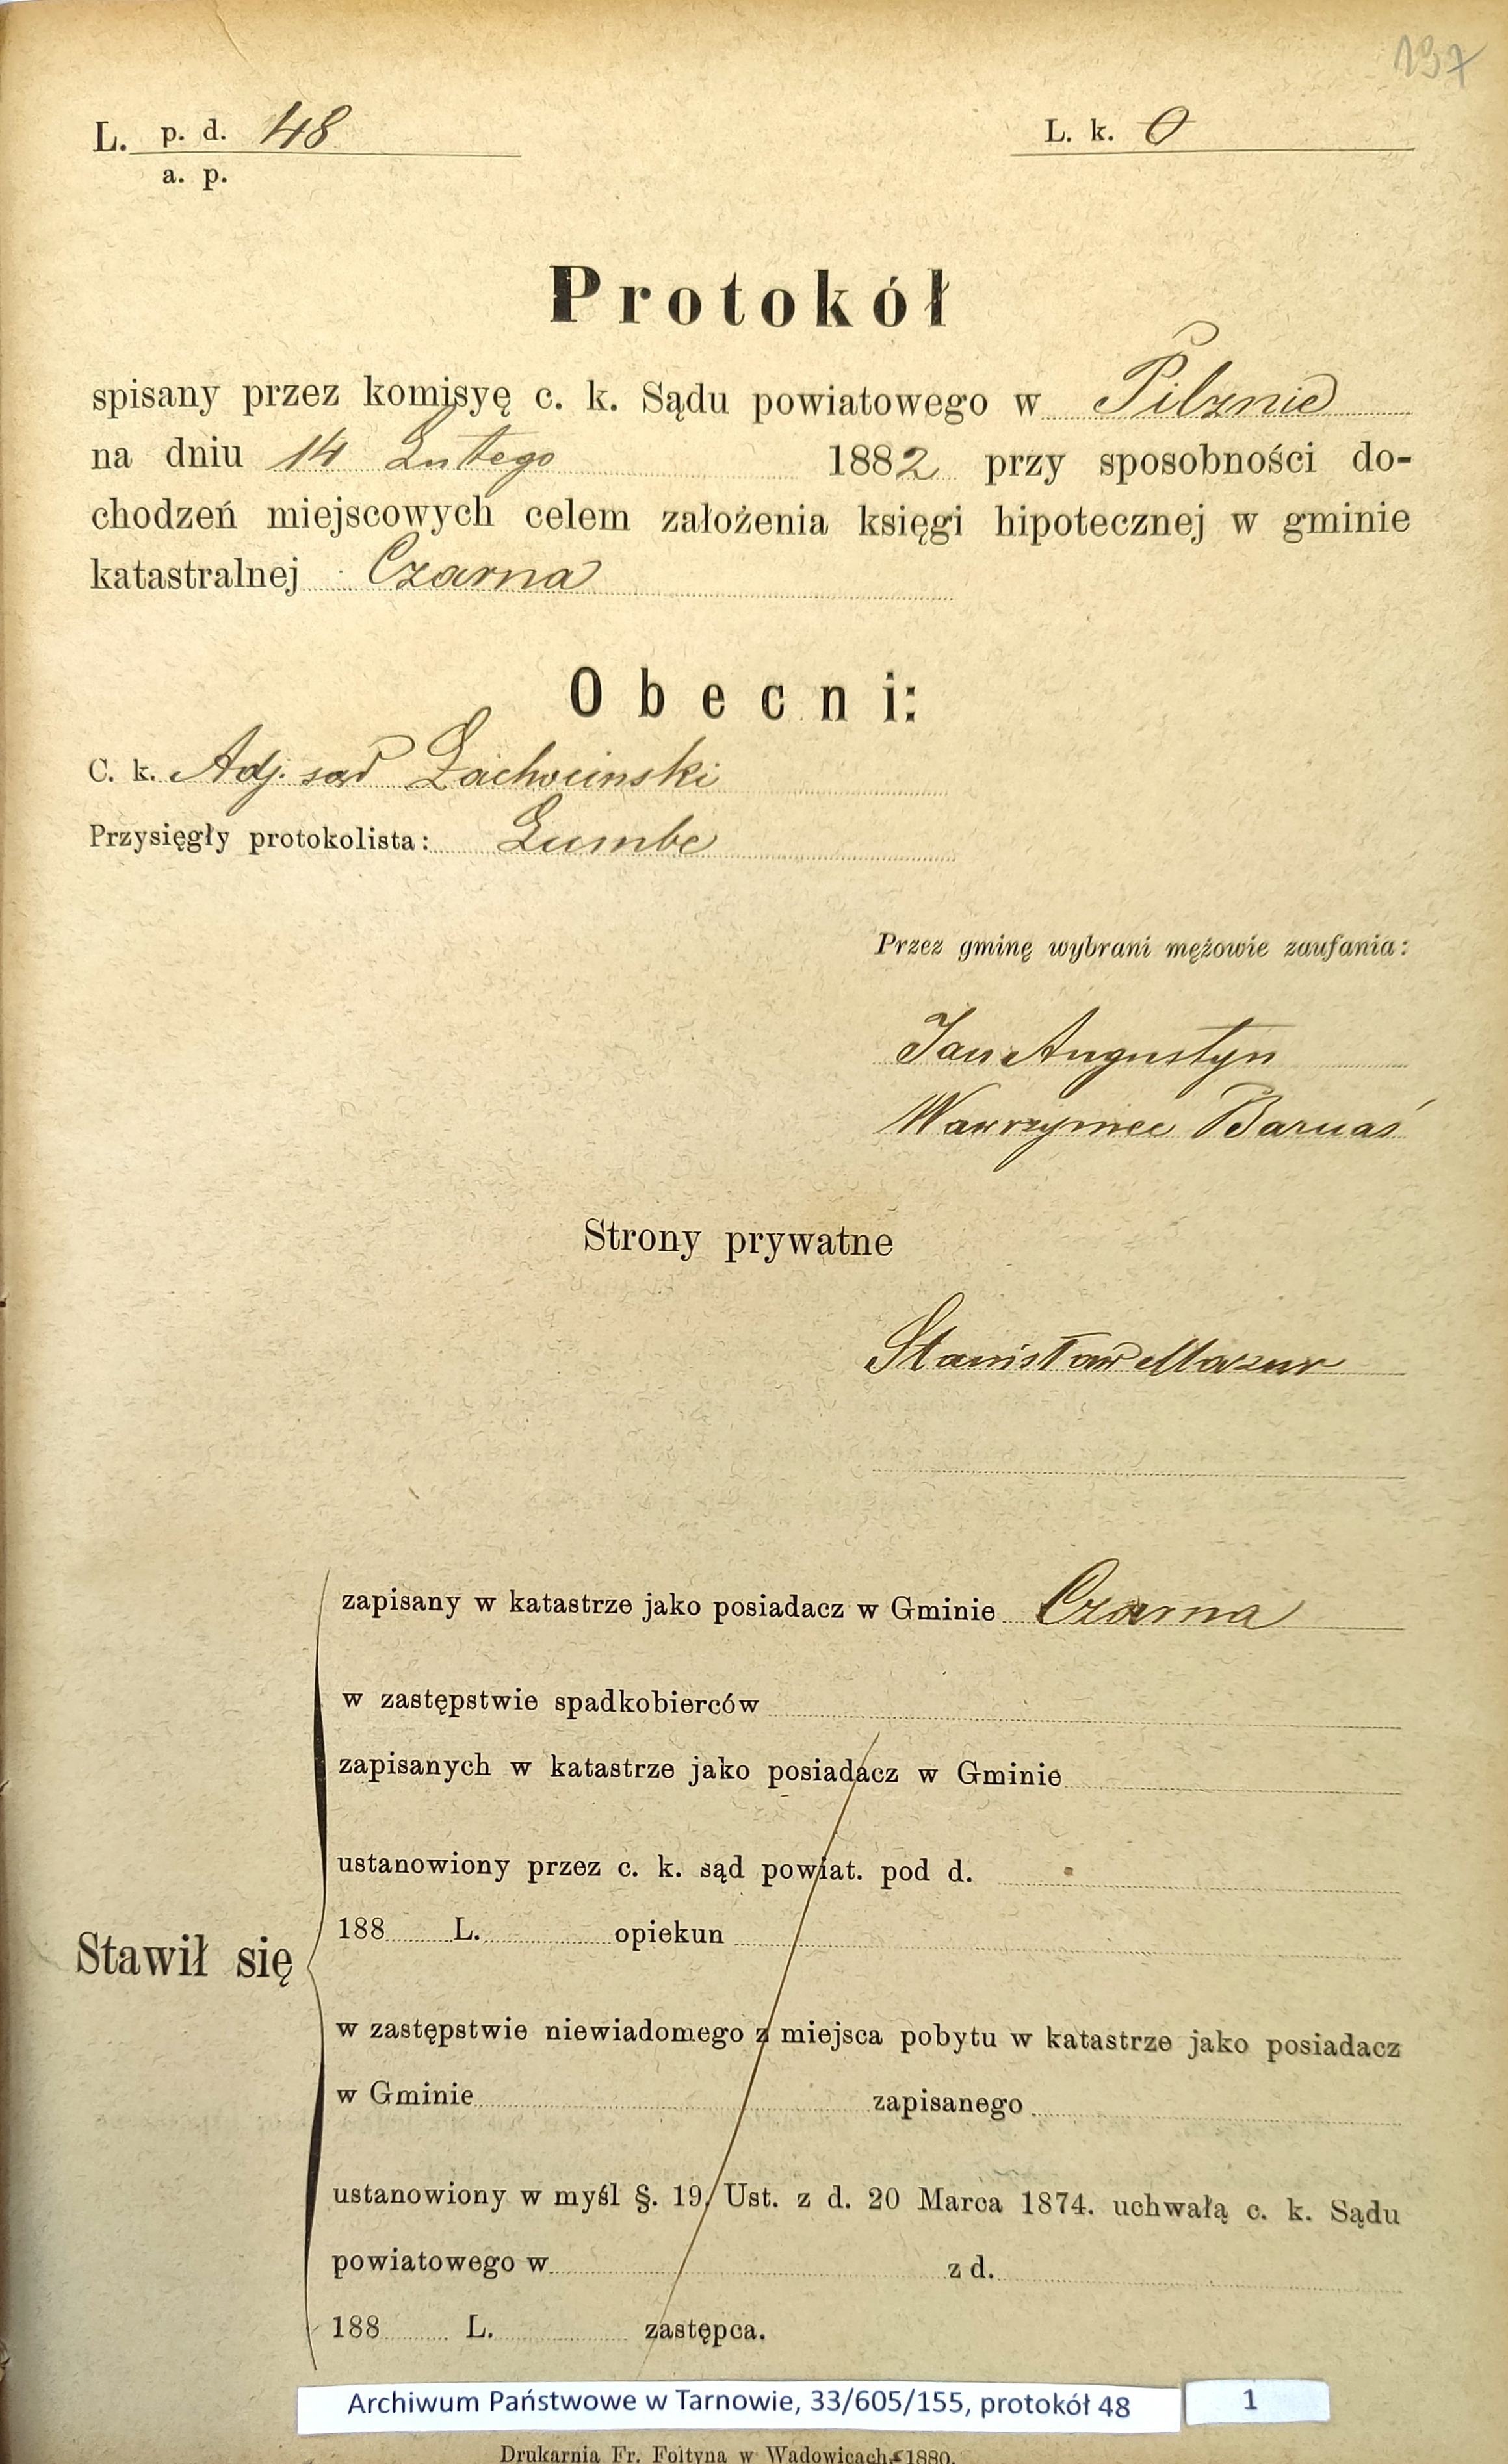 137
L. p. d. 48
a. p.
L. k. 0
Protokół
spisany przez komisyę c. k. Sądu powiatowego w Pilznie
na dniu 14 Lutego 1882 przy sposobności do-
chodzeń miejscowych celem założenia księgi hipotecznej w gminie
katastralnej Czarna
Obecni:
C. k. Adj. sąd Lachociński
Przysięgły protokolista: Lumbe
Przez gminę wybrani mężowie zaufania:
Jan Augustyn
Wawrzyniec Barnaś
Strony prywatne
Stanisław Mazur
zapisany w katastrze jako posiadacz w Gminie Czarna
w zastępstwie spadkobierców
zapisanych w katastrze jako posiadacz w Gminie
ustanowiony przez c. k. sąd powiat. pod d.
188 L. opiekun
Stawił się
w zastępstwie niewiadomego z miejsca pobytu w katastrze jako posiadacz
w Gminie zapisanego
ustanowiony w myśl §. 19. Ust. z d. 20 Marca 1874. uchwałą c. k. Sądu
powiatowego w z d.
188 L. zastępca.
Archiwum Państwowe w Tarnowie, 33/605/155, protokół 48
1
Drukarnia Fr. Foltyna w Wadowicach 1880.